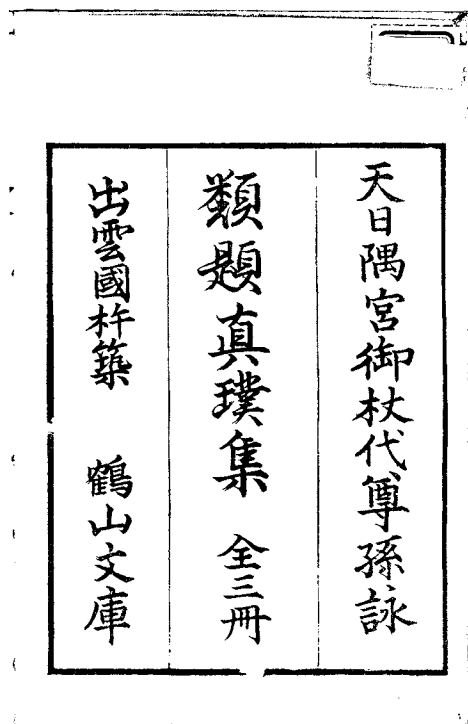 天日隅宮御杖代尊孫詠
類題真璞集 全三冊
出雲國杵築 鶴山文庫